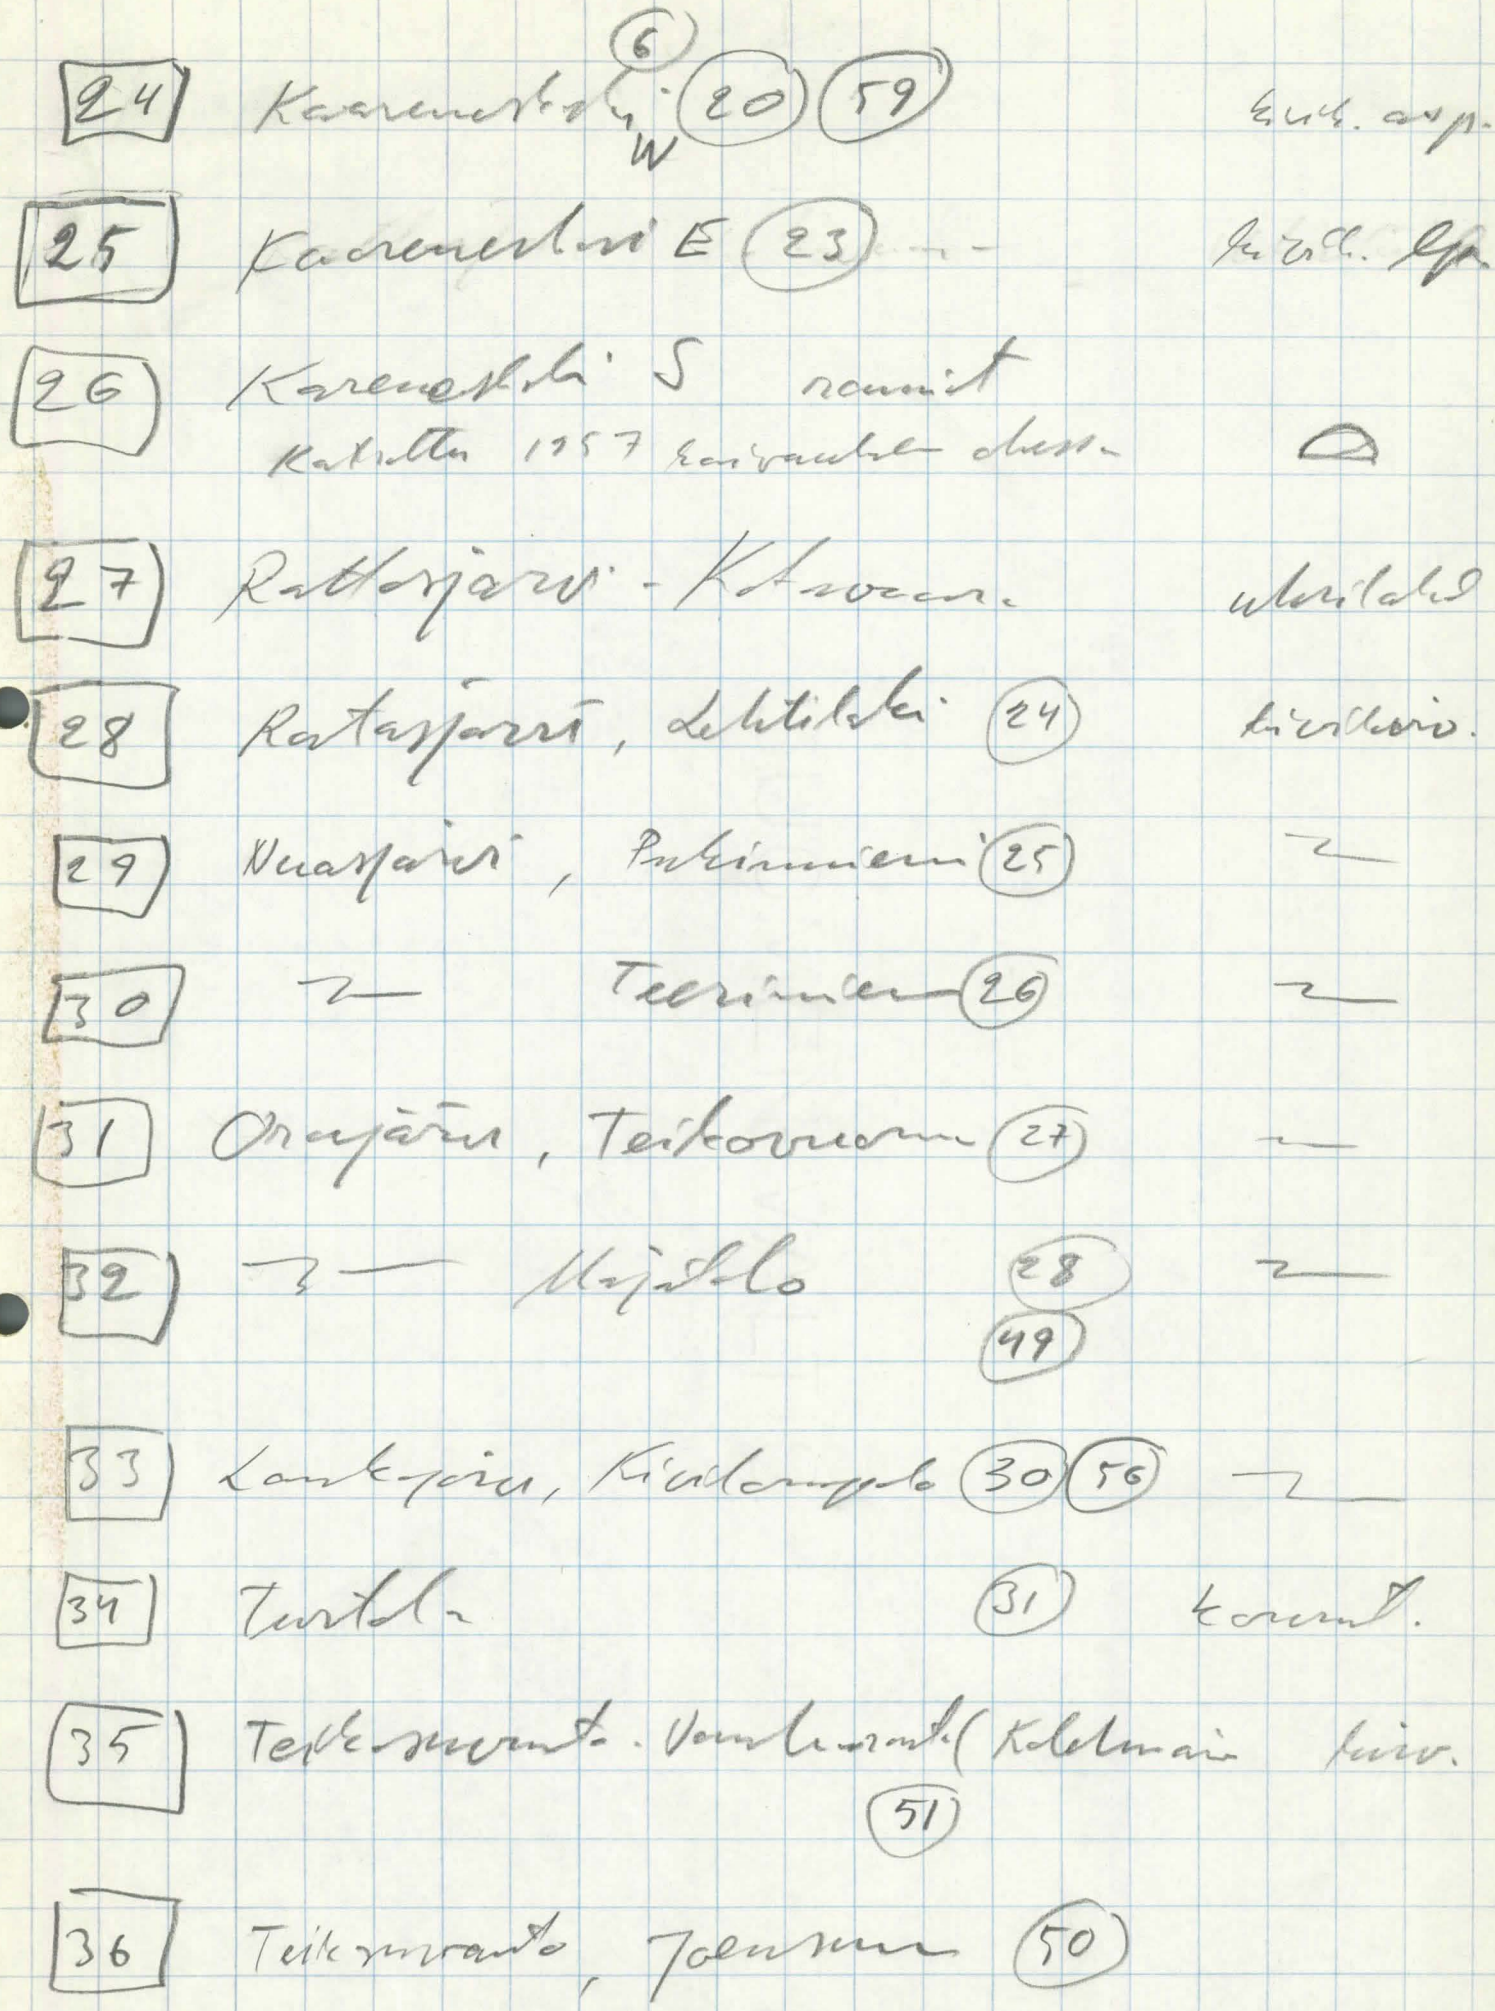 6
24 Kaareneskoski W 20 59 kivik. asp.
25 Kaareneskoski E 23 kivik. lp.
26 Kareneskoski S rauniot
Katsottu 1957 kaivauksen ohessa
27 Rattosjärvi - Kotavaara uhrilahd
28 Ratasjärvi, Lehtilaki 24 kivikaut.
29 Nuasjärvi, Pukinniemi 25
30 Teeriniemi 26
31 Orajärvi, Teikovuoma 27
32 Majatalo 28
49
33 Lankojärvi, Kivilompolo 30 56
34 Turtola 31
35 Teikosuvanto - Vanharanta (Kolehmain kiv.
51
36 Teikosuvanto, Joensuu 50